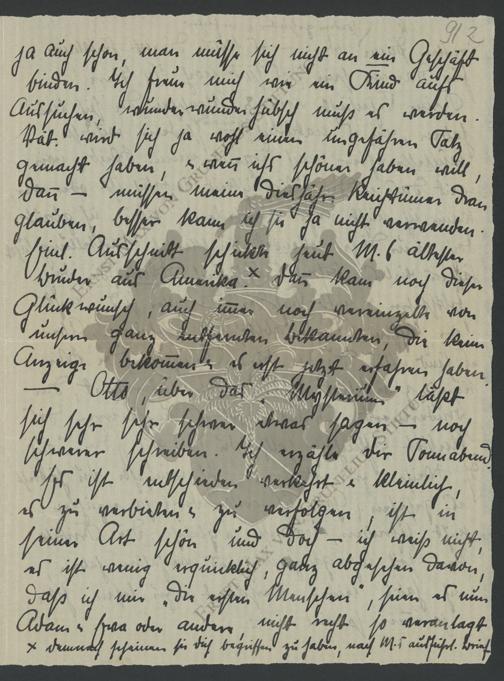 9/2
ja auch schon, man müsse sich nicht an ein Geschäft
binden. Ich freue mich wie ein Kind aufs
Aussuchen, wunderwunderhübsch muß es werden.
Vat. wird sich ja wohl einen ungefähren Satz
gemacht haben, u. wenn ichs schöner haben will,
dann – müssen meine diesjähr. Reichtümer dran
glauben, besser kann ich sie ja nicht verwenden.
Einl. Ausschnitt schickte heut M.s ältester
Bruder aus Amerika. x Dann kam noch dieser
Glückwunsch, auch immer noch vereinzelte von
unsern ganz entfernten Bekannten, die keine
Anzeige bekommen u. es erst jetzt erfahren haben.
— Otto, über das „Mysterium" läßt
sich sehr sehr schwer etwas sagen – noch
schwerer schreiben. Ich erzähle dir Sonnabend.
Es ist entschieden verkehrt u. kleinlich,
es zu verbieten u. zu verfolgen, ist in
seiner Art schön und doch – ich weiß nicht,
es ist wenig erquicklich, ganz abgesehen davon,
daß ich mir „die ersten Menschen", seien es nun
Adam u. Eva oder andere nicht recht so veranlagt
x demnach scheinen sie dich begriffen zu haben, nach M.s ausführl. Brief